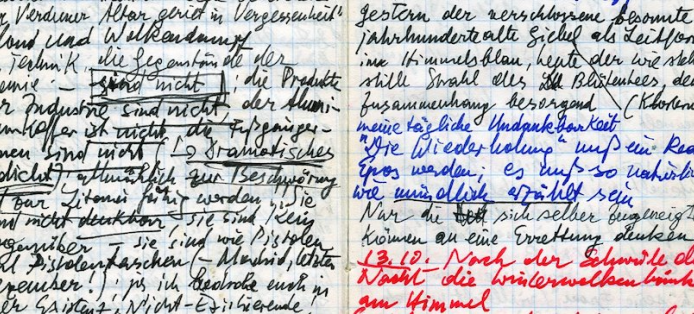 Verduner Altar geriet in Vergessenheit"
und und Wolkendampf
Technik, die Gegenstände der
sind nicht, die Produkte
der Industrie sind nicht, der Alumi-
koffer ist nicht, die Fußgänger-
nen sind nicht! → Dramatisches
dicht, allmählich zur Beschwörung
zur Litanei führig werden, Sie
nicht denkbar, sie sind kein
Gegenüber, sie sind wie Pistolen
Pistolentaschen (- Madrid, letzten
ich bedrohe euch in
der Existenz, Nicht-Existierende,
gestern der verschlossene besonnte
jahrhundertealte Giebel als Leitfos
im Himmelsblau, heute der wie
stille Strahl des Blütentees, den
Zusammenhang besorgend (Kloster
meine tägliche Undankbarkeit
"Die Wiederholung" muß ein
Epos werden; es muß so natürli
wie mündlich erzählt sein
Nur die sich selber zugeneigt
können an eine Errettung denken
13.10. Nach der Schwüle d
Nacht die Winterwolkenbänk
am Himmel